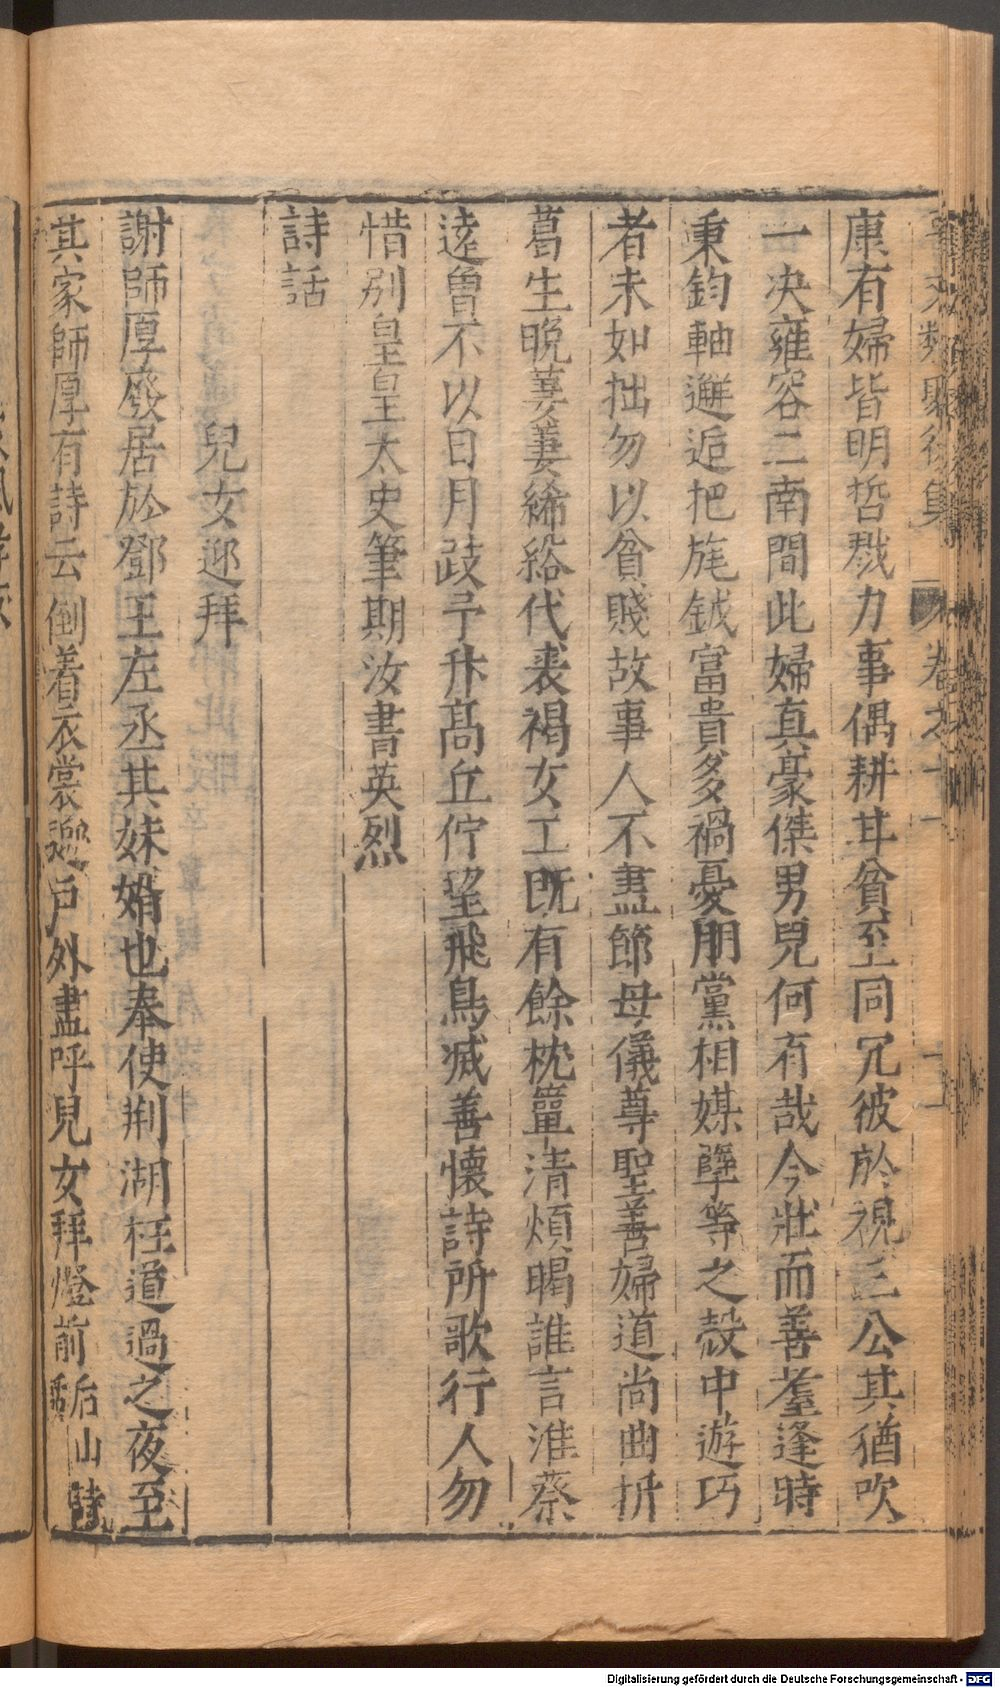 康有婦皆明哲戮力事偶耕甘貧至同冗彼於視三公其猶吹
一决雍容二南間此婦真豪傑男兒何有哉今壯而善羞逢時
秉鈞軸邂逅把旄鉞富貴多禍憂朋黨相媒孽等之殼中遊巧
者未如拙勿以貧賤故事人不盡節母儀尊聖善婦道尚曲折
葛生晚萋萋絺綌代裘褐女工旣有餘枕簟清煩暍誰言淮蔡
遠曾不以日月跂予升高丘佇望飛鳥滅善懷詩所歌行人勿
惜别皇皇太史筆期汝書英烈
詩話
兒女迎拜
謝師厚廢居於鄧王左丞其妹婿也奉使荆湖枉道過之夜至
其家師厚有詩云倒着衣裳迎戶外盡呼兒女拜燈前 后山詩話
卷之十一
Digitalisierung gefördert durch die Deutsche Forschungsgemeinschaft - DFG